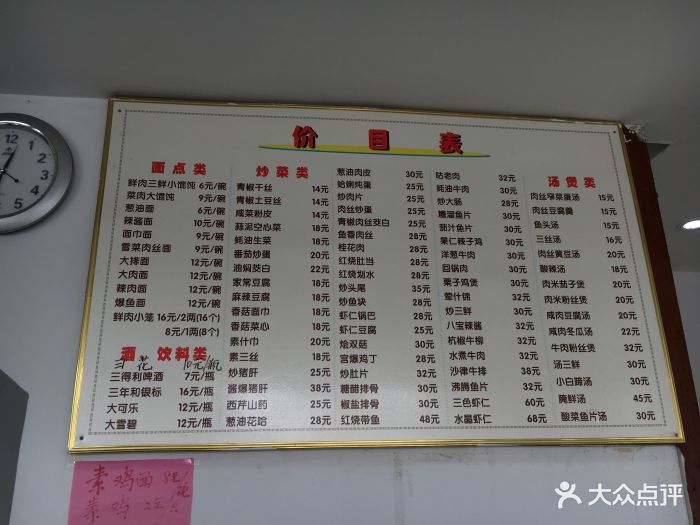 价目表
面点类
鲜肉三鲜小馄饨 6元/碗
菜肉大馄饨 9元/碗
葱油面 6元/碗
辣酱面 10元/碗
面巾面 9元/碗
雪菜肉丝面 9元/碗
大排面 12元/碗
大肉面 12元/碗
辣肉面 12元/碗
爆鱼面 12元/碗
鲜肉小笼 16元/2两(16个)
8元/1两(8个)
酒、饮料类
10元/瓶
三得利啤酒 7元/瓶
三年和银标 16元/瓶
大可乐 12元/瓶
大雪碧 12元/瓶
炒菜类
青椒干丝 14元
青椒土豆丝 14元
咸菜粉皮 14元
蒜泥空心菜 18元
蚝油生菜 18元
番茄炒蛋 20元
油焖茭白 22元
家常豆腐 18元
麻辣豆腐 18元
香菇面巾 18元
香菇菜心 18元
素什巾 20元
素三丝 18元
炒猪肝 38元
酱爆猪肝 38元
西芹山药 25元
葱油花哈 28元
葱油肉皮 30元
蛤蜊炖蛋 25元
炒肉片 25元
肉丝炒蛋 25元
青椒肉丝茭白 25元
鱼香肉丝 28元
桂花肉 28元
红烧肚当 28元
红烧划水 28元
炒头尾 35元
炒鱼块 28元
虾仁锅巴 28元
虾仁豆腐 30元
烩双菇 30元
宫爆鸡丁 28元
炒肚片 32元
糖醋排骨 30元
椒盐排骨 30元
红烧带鱼 48元
咕老肉 32元
蚝油牛肉 30元
炒大肠 28元
糟溜鱼片 28元
茄汁鱼片 28元
果仁辣子鸡 30元
洋葱牛肉 30元
回锅肉 30元
栗子鸡煲 30元
荤什锦 32元
炒三鲜 30元
八宝辣酱 32元
杭椒牛柳 32元
水煮牛肉 32元
沙律牛排 38元
沸腾鱼片 32元
三色虾仁 60元
水晶虾仁 68元
汤煲类
肉丝窄菜蛋汤 15元
肉丝豆腐羹 15元
鱼头汤 35元
三丝汤 16元
肉丝黄豆汤 20元
酸辣汤 18元
肉米茄子煲 20元
肉米粉丝煲 20元
咸肉豆腐汤 20元
咸肉冬瓜汤 22元
牛肉粉丝煲 32元
汤三鲜 30元
小白蹄汤 30元
腌鲜汤 45元
酸菜鱼片汤 30元
素鸡面
素鸡 2元/
大众点评